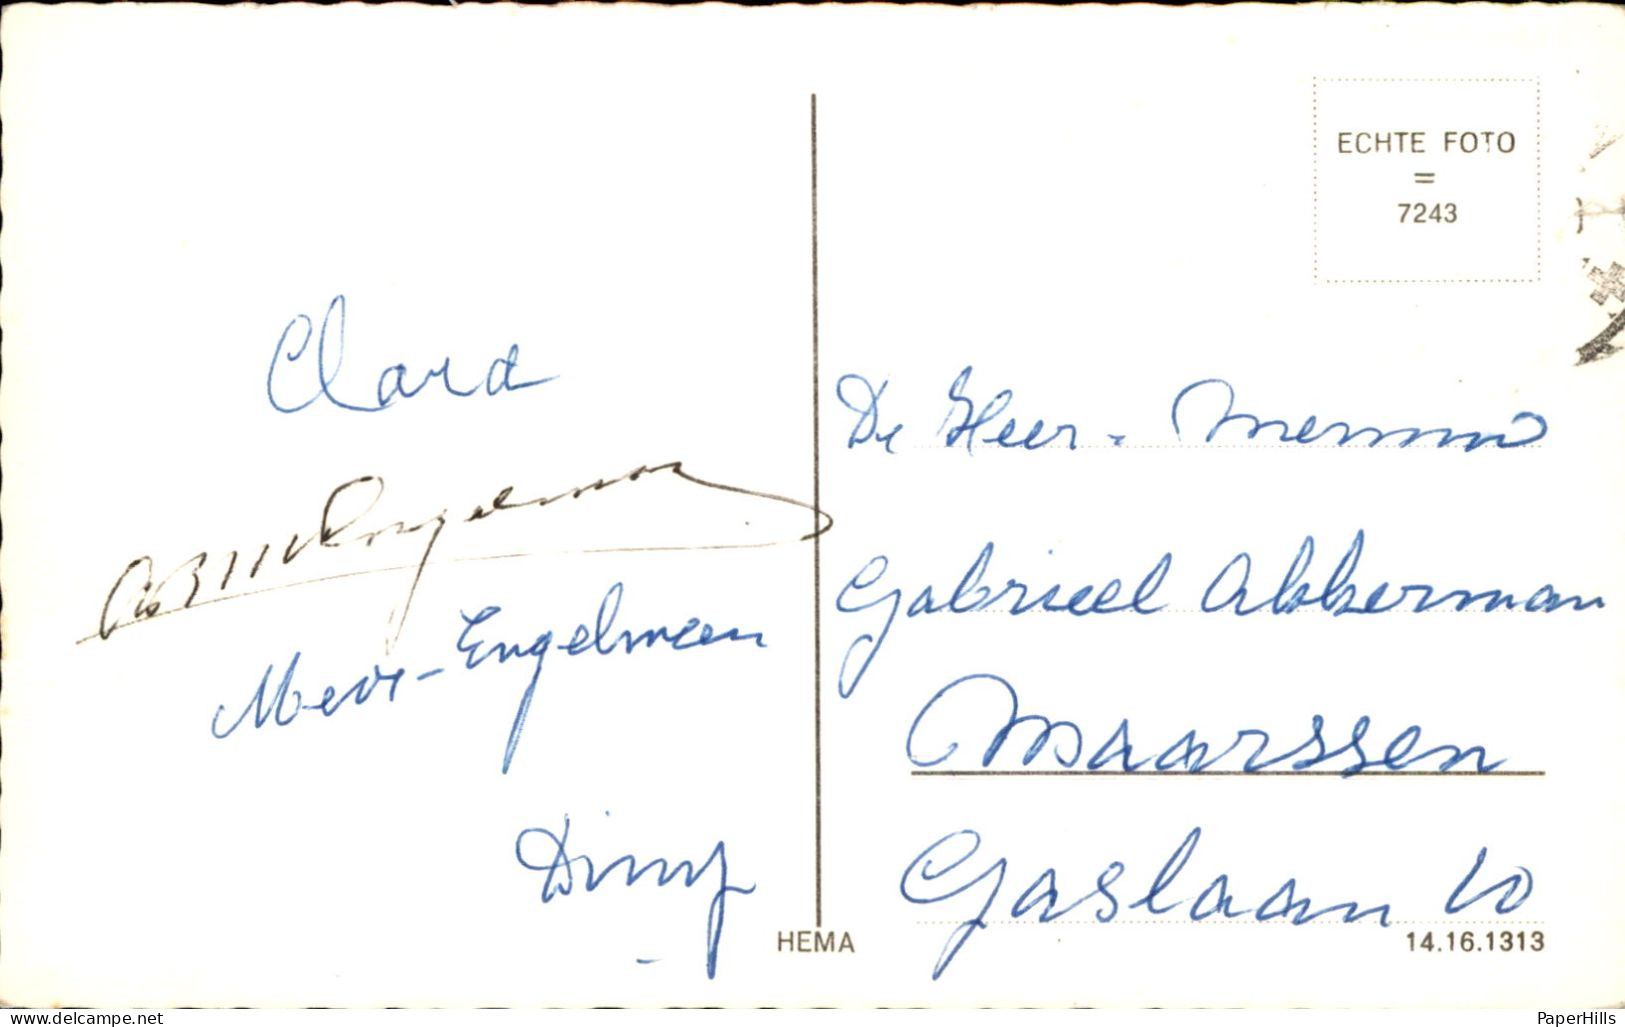 ECHTE FOTO
=
7243
Clara
Engelman
Mevr - Engelman
De Heer -
Gabrieel Akkerman
Maarssen
Gaslaan 10
HEMA
14.16.1313
www.delcampe.net
PaperHills